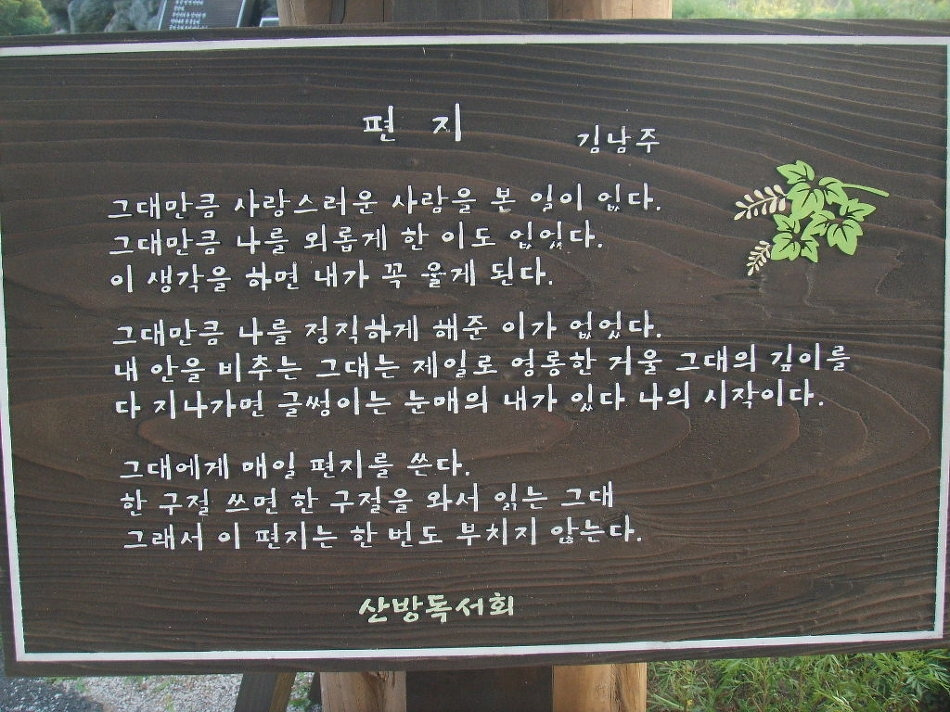 편 지
김남주
그대만큼 사랑스러운 사람을 본 일이 없다.
그대만큼 나를 외롭게 한 이도 없었다.
이 생각을 하면 내가 꼭 울게 된다.
그대만큼 나를 정직하게 해준 이가 없었다.
내 안을 비추는 그대는 제일로 영롱한 거울 그대의 깊이를
다 지나가면 글썽이는 눈매의 내가 있다 나의 시작이다.
그대에게 매일 편지를 쓴다.
한 구절 쓰면 한 구절을 와서 읽는 그대
그래서 이 편지는 한 번도 부치지 않는다.
산방독서회